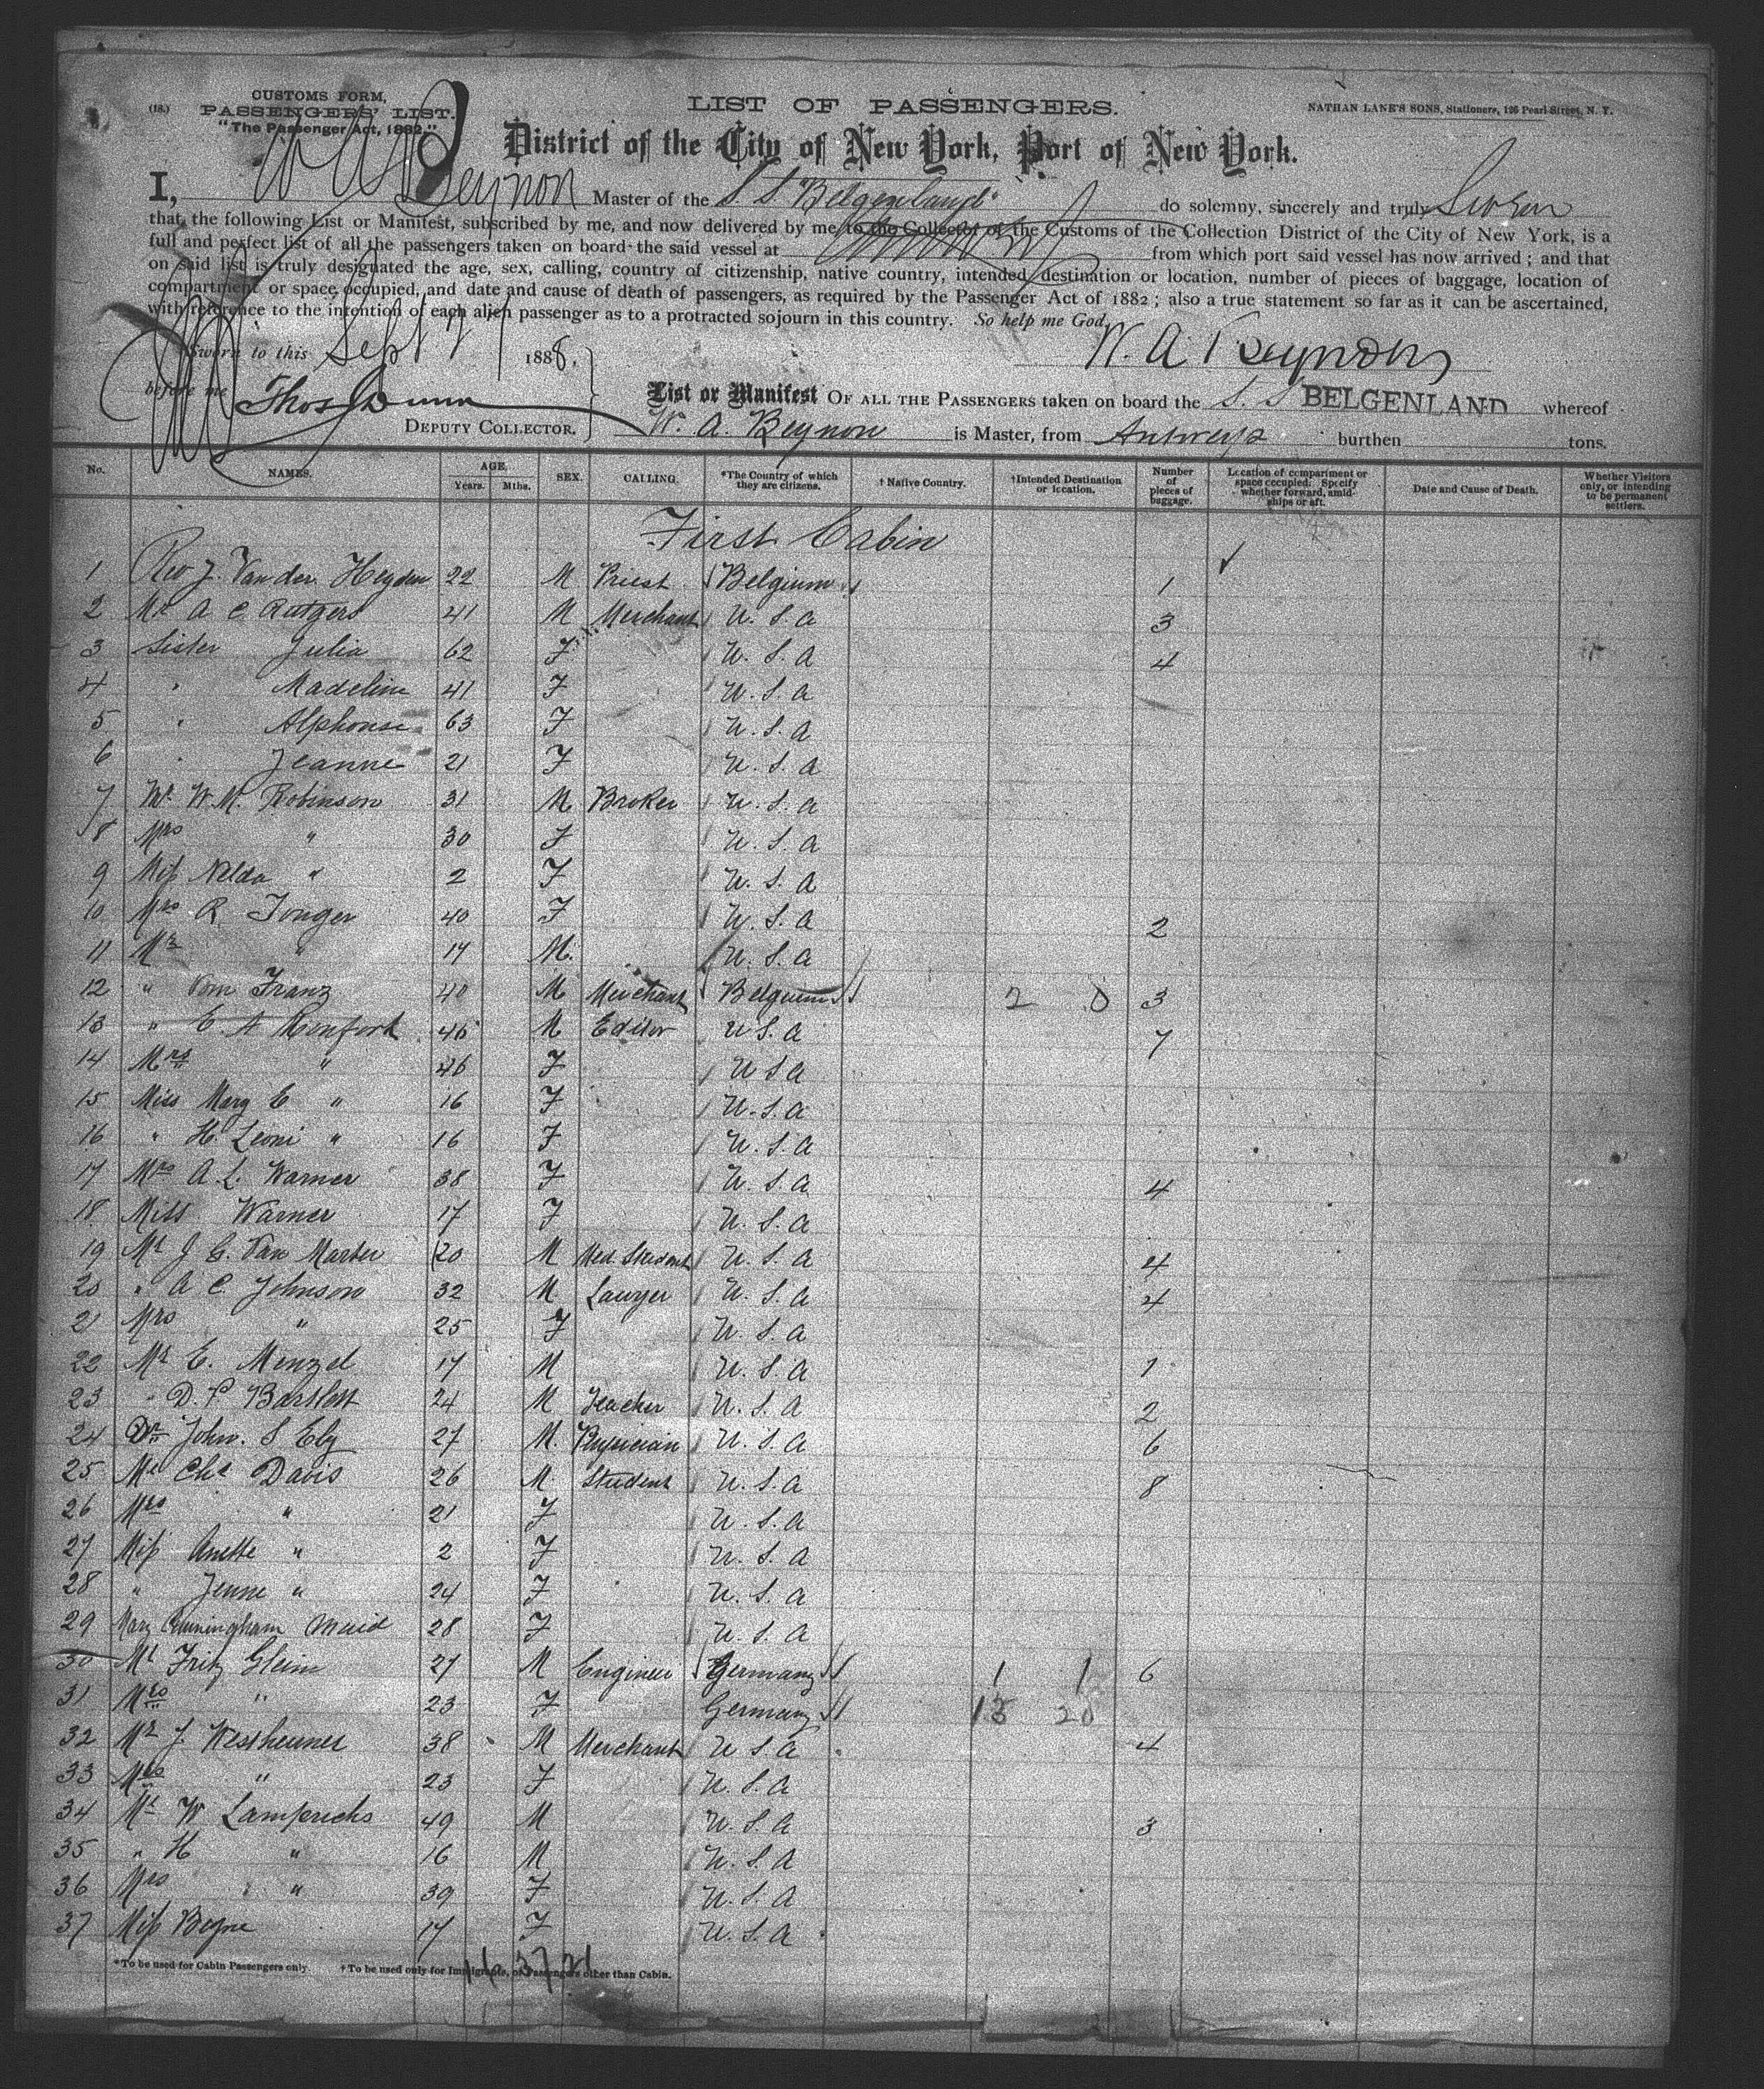 (18.)
CUSTOMS FORM,
PASSENGERS' LIST.
"The Passenger Act, 1882."
LIST OF PASSENGERS.
NATHAN LANE'S SONS, Stationers, 126 Pearl Street, N. Y.
District of the City of New York, Port of New York.
I, W A Beynon Master of the S S "Belgenland" do solemny, sincerely and truly Swear
that the following List or Manifest, subscribed by me, and now delivered by me to the Collector of the Customs of the Collection District of the City of New York, is a
full and perfect list of all the passengers taken on board the said vessel at Antwerp from which port said vessel has now arrived ; and that
on said list is truly designated the age, sex, calling, country of citizenship, native country, intended destination or location, number of pieces of baggage, location of
compartment or space occupied, and date and cause of death of passengers, as required by the Passenger Act of 1882 ; also a true statement so far as it can be ascertained,
with reference to the intention of each alien passenger as to a protracted sojourn in this country. So help me God,
Sworn to this Sept 1888, W. A Beynon
before me Thos Dunn
DEPUTY COLLECTOR.
List or Manifest OF ALL THE PASSENGERS taken on board the S. S BELGENLAND whereof
W. A. Beynon is Master, from Antwerp burthen tons.
No. NAMES. AGE. Years. Mths. SEX. CALLING. *The Country of which they are citizens. † Native Country. †Intended Destination or location. Number of pieces of baggage. Location of compartment or space occupied. Specify whether forward, amidships or aft. Date and Cause of Death. Whether Visitors only, or intending to be permanent settlers.
First Cabin
1 Rev J. Van der Heyden 22 M Priest Belgium 1
2 Mr A C Rutgers 41 M Merchant U. S. A 3
3 Sister Julia 62 F U. S. A 4
4 " Madeline 41 F U. S. A
5 " Alphonse 63 F U. S. A
6 " Jeanne 21 F U. S. A
7 Mr W. M. Robinson 31 M Broker U. S. A
8 Mrs " 30 F U. S. A
9 Miss Nelda " 2 F U. S. A
10 Mrs R Tonger 40 F U. S. A 2
11 Mr " 17 M. U. S. A
12 " Vom Franz 40 M Merchant Belguem 2 0 3
13 " E. A Renfork 46 M Editor U S. A 7
14 Mrs " 46 F U S A
15 Miss Mary E " 16 F U. S. A
16 " H. Leoni " 16 F U. S. A
17 Mrs A. L. Warner 38 F U. S. A 4
18 Miss Warner 17 F U. S. A
19 Mr J. G. Van Marter 20 M Med. Student U. S. A 4
20 " A C. Johnson 32 M Lawyer U. S. A 4
21 Mrs " 25 F U. S. A
22 Mr E. Menzel 17 M U. S. A 1
23 " D. P Bartlett 24 M Teacher U. S. A 2
24 Dr John. S Ely 27 M. Physician U. S. A 6
25 Mr Chs Davis 26 M Student U. S. A 8
26 Mrs " 21 F U. S. A
27 Miss Anette " 2 F U. S. A
28 " Jenne " 24 F U. S. A
29 Mary Cunningham Maid 28 F U. S. A
30 Mr Fritz Gleim 27 M Engineer Germany 1 1 6
31 Mrs " 23 F Germany 13 28
32 Mr J. Westheimer 38 M Merchant U S A 4
33 Mrs " 23 F U. S. A
34 Mr W Lamprechs 49 M U. S. A 3
35 " H " 16 M U. S. A
36 Mrs " 39 F U. S. A
37 Miss Beyne 17 F U. S. A
*To be used for Cabin Passengers only. †To be used only for Immigrants, or Passengers other than Cabin.